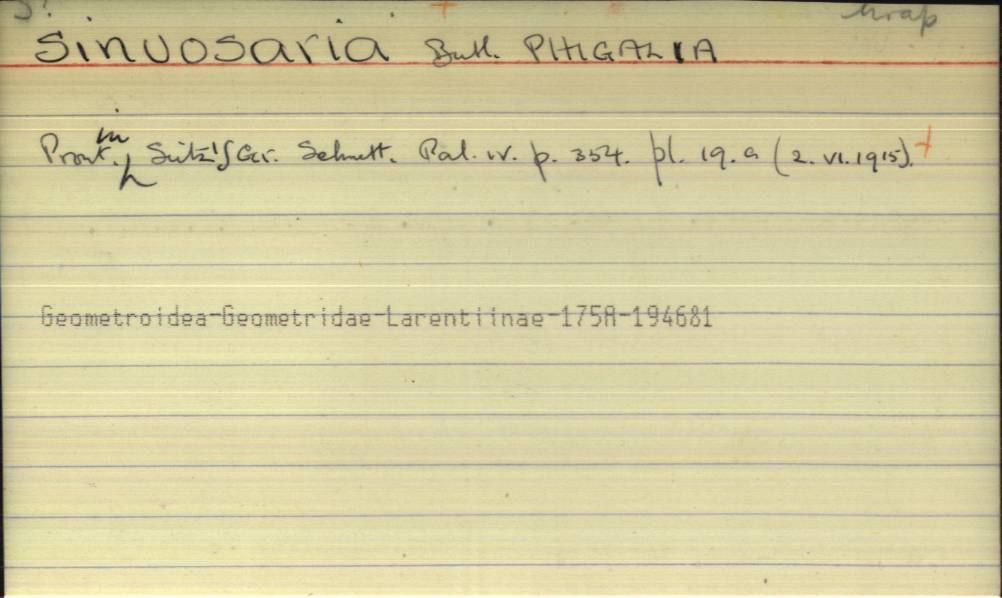 wrap
sinuosaria Butl. PHIGALIA
Prout. in Seitz's Gr. Schmett. Pal. IV. p. 354. pl. 19. a (2. VI. 1915). +
Geometroidea-Geometridae-Larentiinae-175A-194681